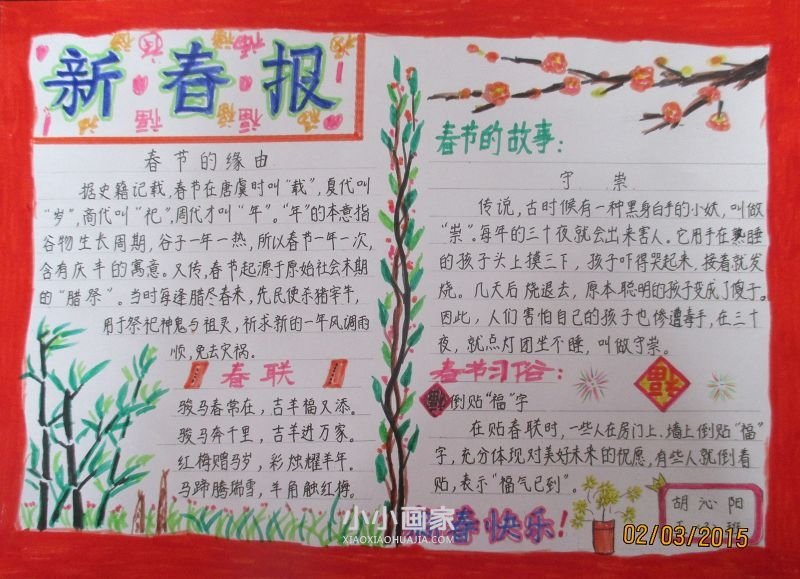 新春报
春节的缘由
据史籍记载,春节在唐虞时叫"载",夏代叫
"岁",商代叫"祀",周代才叫"年"。"年"的本意指
谷物生长周期,谷子一年一熟,所以春节一年一次,
含有庆丰的寓意。又传,春节起源于原始社会末期
的"腊祭"。当时每逢腊尽春来,先民便杀猪宰牛,
用于祭祀神鬼与祖灵,祈求新的一年风调雨
顺,免去灾祸。
春联
骏马春常在,吉羊福又添。
骏马奔千里,吉羊进万家。
红梅赠马岁,彩烛耀羊年。
马蹄腾瑞雪,羊角触红梅。
春节的故事:
守祟
传说,古时候有一种黑身白手的小妖,叫做
"祟"。每年的三十夜就会出来害人。它用手在熟睡
的孩子头上摸三下,孩子吓得哭起来,接着就发
烧。几天后烧退去,原本聪明的孩子变成了傻子。
因此,人们害怕自己的孩子也惨遭毒手,在三十
夜,就点灯团坐不睡,叫做守祟。
春节习俗:
福
倒贴"福"字
在贴春联时,一些人在房门上、墙上倒贴"福"
字,充分体现对美好未来的祝愿,有些人就倒着
贴,表示"福气已到"。
春快乐!
胡沁阳
班
小小画家
XIAOXIAOHUAJIA.COM
02/03/2015